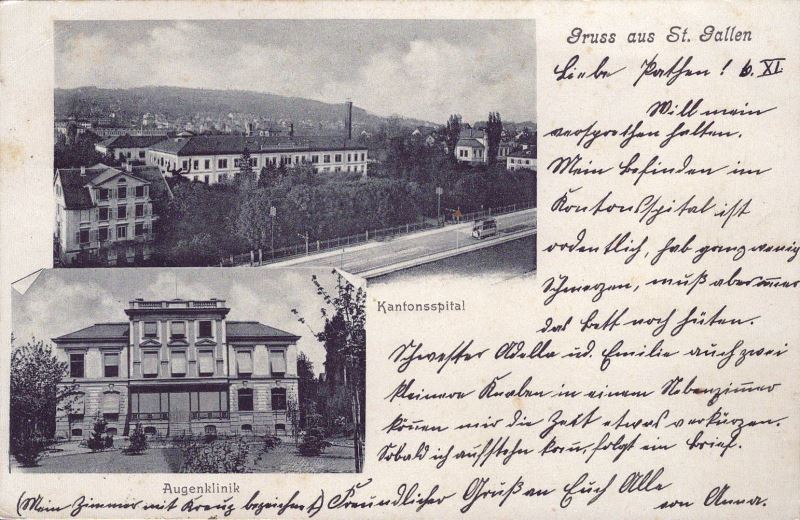 Gruss aus St. Gallen
Liebe Pathen! 6. XI.
Will mein
versprechen halten.
Mein Befinden im
Kantonsspital ist
ordentlich, hab ganz wenig
Schmerzen, muß aber immer
das Bett noch hüten.
Schwester Adella ud. Emilie auch zwei
kleinere Knaben in einem Nebenzimmer
können mir die Zeit etwas verkürzen.
Sobald ich aufstehn kann, folgt ein Brief.
Freundlicher Gruß an Euch Alle
von Anna.
(Mein Zimmer mit Kreuz bezeichnet)
Kantonsspital
Augenklinik